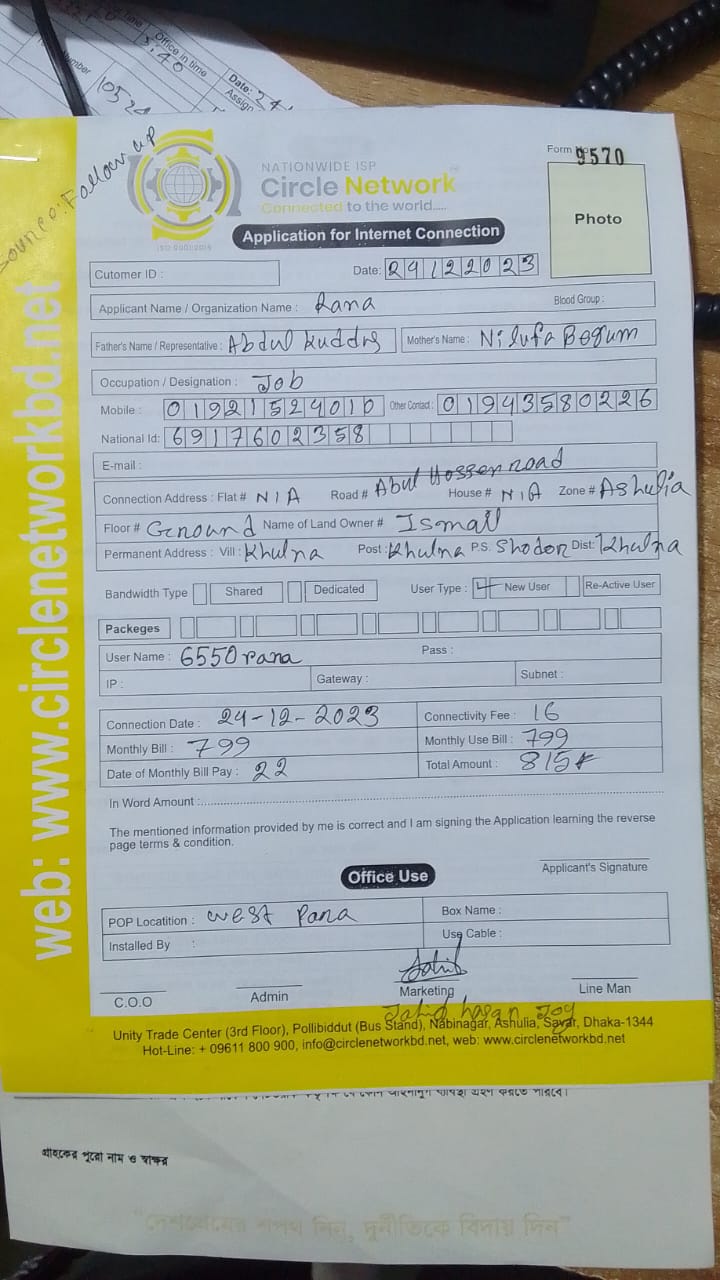 Office in time
3:40
Date: 24
Assign
10524
Source: Follow up
web: www.circlenetworkbd.net
NATIONWIDE ISP
Circle Network
Connected to the world.....
ISO 9001:2015
Form No 9570
Photo
Application for Internet Connection
Cutomer ID :
Date: 24122023
Applicant Name / Organization Name : Rana
Blood Group :
Father's Name / Representative : Abdul Kuddus
Mother's Name : Nilufa Begum
Occupation / Designation : Job
Mobile : 01921524010
Other Contact : 01943580226
National Id: 6917602358
E-mail :
Connection Address : Flat # N/A Road # Abul Hossen road House # N/A Zone # Ashulia
Floor # Ground Name of Land Owner # Ismail
Permanent Address : Vill : Khulna Post : Khulna P.S. Shodor Dist: Khulna
Bandwidth Type Shared Dedicated User Type : New User Re-Active User
Packeges
User Name : 6550rana Pass :
IP : Gateway : Subnet :
Connection Date : 24-12-2023 Connectivity Fee : 16
Monthly Bill : 799 Monthly Use Bill : 799
Date of Monthly Bill Pay : 22 Total Amount : 815
In Word Amount :
The mentioned information provided by me is correct and I am signing the Application learning the reverse
page terms & condition.
Applicant's Signature
Office Use
POP Locatition : west Para Box Name :
Installed By : Use Cable :
C.O.O Admin Marketing Line Man
Jahid hasan Joy
Unity Trade Center (3rd Floor), Pollibiddut (Bus Stand), Nabinagar, Ashulia, Savar, Dhaka-1344
Hot-Line: + 09611 800 900, info@circlenetworkbd.net, web: www.circlenetworkbd.net
গ্রাহকের পুরো নাম ও স্বাক্ষর
"দেশপ্রেমের শপথ নিন, দুর্নীতিকে বিদায় দিন"